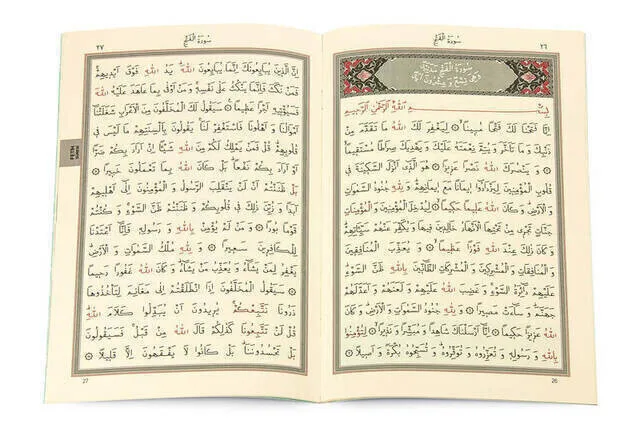 سُورَةُ الْفَتْحِ ٢٦
سُورَةُ الْفَتْحِ مَدَنِيَّةٌ
وَهِيَ تِسْعٌ وَ عِشْرُونَ اٰيَةً
بِسْمِ اللّٰهِ الرَّحْمٰنِ الرَّحِيمِ
اِنَّا فَتَحْنَا لَكَ فَتْحًا مُبِينًا ۝ لِيَغْفِرَ لَكَ اللّٰهُ مَا تَقَدَّمَ مِنْ
ذَنْبِكَ وَ مَا تَاَخَّرَ وَ يُتِمَّ نِعْمَتَهُ عَلَيْكَ وَ يَهْدِيَكَ صِرَاطًا مُسْتَقِيمًا
۝ وَ يَنْصُرَكَ اللّٰهُ نَصْرًا عَزِيزًا ۝ هُوَ الَّذِى اَنْزَلَ السَّكِينَةَ فِى
قُلُوبِ الْمُؤْمِنِينَ لِيَزْدَادُوا اِيمَانًا مَعَ اِيمَانِهِمْ وَ لِلّٰهِ جُنُودُ السَّمٰوَاتِ
وَ الْاَرْضِ وَ كَانَ اللّٰهُ عَلِيمًا حَكِيمًا ۝ لِيُدْخِلَ الْمُؤْمِنِينَ وَ الْمُؤْمِنَاتِ
جَنَّاتٍ تَجْرِى مِنْ تَحْتِهَا الْاَنْهَارُ خَالِدِينَ فِيهَا وَ يُكَفِّرَ عَنْهُمْ سَيِّئَاتِهِمْ
وَ كَانَ ذٰلِكَ عِنْدَ اللّٰهِ فَوْزًا عَظِيمًا ۝ وَ يُعَذِّبَ الْمُنَافِقِينَ
وَ الْمُنَافِقَاتِ وَ الْمُشْرِكِينَ وَ الْمُشْرِكَاتِ الظَّانِّينَ بِاللّٰهِ ظَنَّ السَّوْءِ
عَلَيْهِمْ دَائِرَةُ السَّوْءِ وَ غَضِبَ اللّٰهُ عَلَيْهِمْ وَ لَعَنَهُمْ وَ اَعَدَّ لَهُمْ
جَهَنَّمَ وَ سَاءَتْ مَصِيرًا ۝ وَ لِلّٰهِ جُنُودُ السَّمٰوَاتِ وَ الْاَرْضِ وَ كَانَ
اللّٰهُ عَزِيزًا حَكِيمًا ۝ اِنَّا اَرْسَلْنَاكَ شَاهِدًا وَ مُبَشِّرًا وَ نَذِيرًا ۝ لِتُؤْمِنُوا
بِاللّٰهِ وَ رَسُولِهِ وَ تُعَزِّرُوهُ وَ تُوَقِّرُوهُ وَ تُسَبِّحُوهُ بُكْرَةً وَ اَصِيلًا ۝
26
سُورَةُ الْفَتْحِ ٢٧
اِنَّ الَّذِينَ يُبَايِعُونَكَ اِنَّمَا يُبَايِعُونَ اللّٰهَ يَدُ اللّٰهِ فَوْقَ اَيْدِيهِمْ
فَمَنْ نَكَثَ فَاِنَّمَا يَنْكُثُ عَلٰى نَفْسِهِ وَ مَنْ اَوْفٰى بِمَا عَاهَدَ عَلَيْهُ اللّٰهَ
فَسَيُؤْتِيهِ اَجْرًا عَظِيمًا ۝ سَيَقُولُ لَكَ الْمُخَلَّفُونَ مِنَ الْاَعْرَابِ شَغَلَتْنَا
اَمْوَالُنَا وَ اَهْلُونَا فَاسْتَغْفِرْ لَنَا يَقُولُونَ بِاَلْسِنَتِهِمْ مَا لَيْسَ فِى
قُلُوبِهِمْ قُلْ فَمَنْ يَمْلِكُ لَكُمْ مِنَ اللّٰهِ شَيْئًا اِنْ اَرَادَ بِكُمْ ضَرًّا
اَوْ اَرَادَ بِكُمْ نَفْعًا بَلْ كَانَ اللّٰهُ بِمَا تَعْمَلُونَ خَبِيرًا ۝
بَلْ ظَنَنْتُمْ اَنْ لَنْ يَنْقَلِبَ الرَّسُولُ وَ الْمُؤْمِنُونَ اِلٰى اَهْلِيهِمْ
اَبَدًا وَ زُيِّنَ ذٰلِكَ فِى قُلُوبِكُمْ وَ ظَنَنْتُمْ ظَنَّ السَّوْءِ وَ كُنْتُمْ
قَوْمًا بُورًا ۝ وَ مَنْ لَمْ يُؤْمِنْ بِاللّٰهِ وَ رَسُولِهِ فَاِنَّا اَعْتَدْنَا
لِلْكَافِرِينَ سَعِيرًا ۝ وَ لِلّٰهِ مُلْكُ السَّمٰوَاتِ وَ الْاَرْضِ
يَغْفِرُ لِمَنْ يَشَاءُ وَ يُعَذِّبُ مَنْ يَشَاءُ وَ كَانَ اللّٰهُ غَفُورًا رَحِيمًا
۝ سَيَقُولُ الْمُخَلَّفُونَ اِذَا انْطَلَقْتُمْ اِلٰى مَغَانِمَ لِتَأْخُذُوهَا
ذَرُونَا نَتَّبِعْكُمْ يُرِيدُونَ اَنْ يُبَدِّلُوا كَلَامَ اللّٰهِ
قُلْ لَنْ تَتَّبِعُونَا كَذٰلِكُمْ قَالَ اللّٰهُ مِنْ قَبْلُ فَسَيَقُولُونَ
بَلْ تَحْسُدُونَنَا بَلْ كَانُوا لَا يَفْقَهُونَ اِلَّا قَلِيلًا ۝
27
FETİH
SÛRESİ